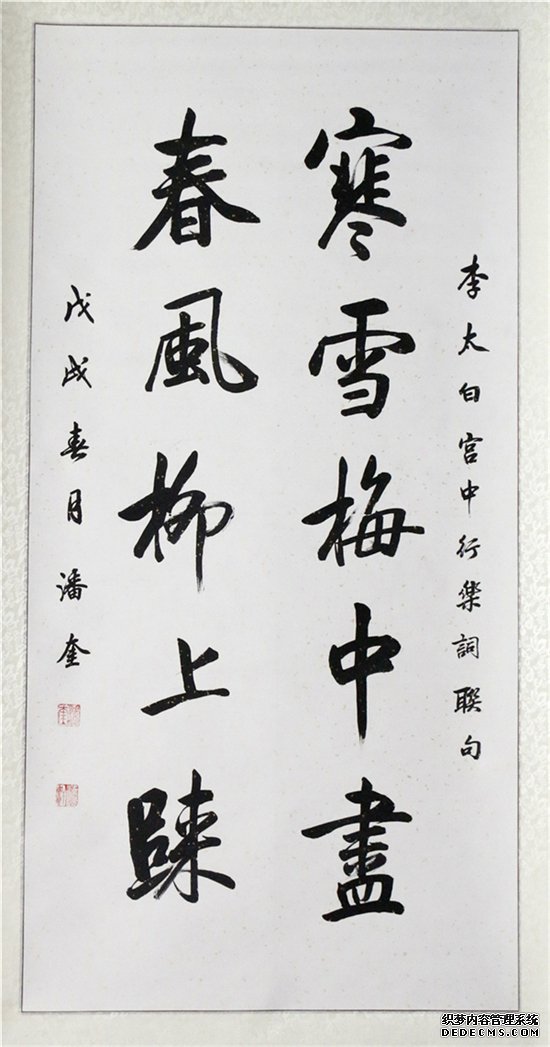 李太白宫中行樂詞聯句
寒雪梅中盡
春風柳上歸
戊戌春月潘奎
织梦内容管理系统
DEDECMS.COM